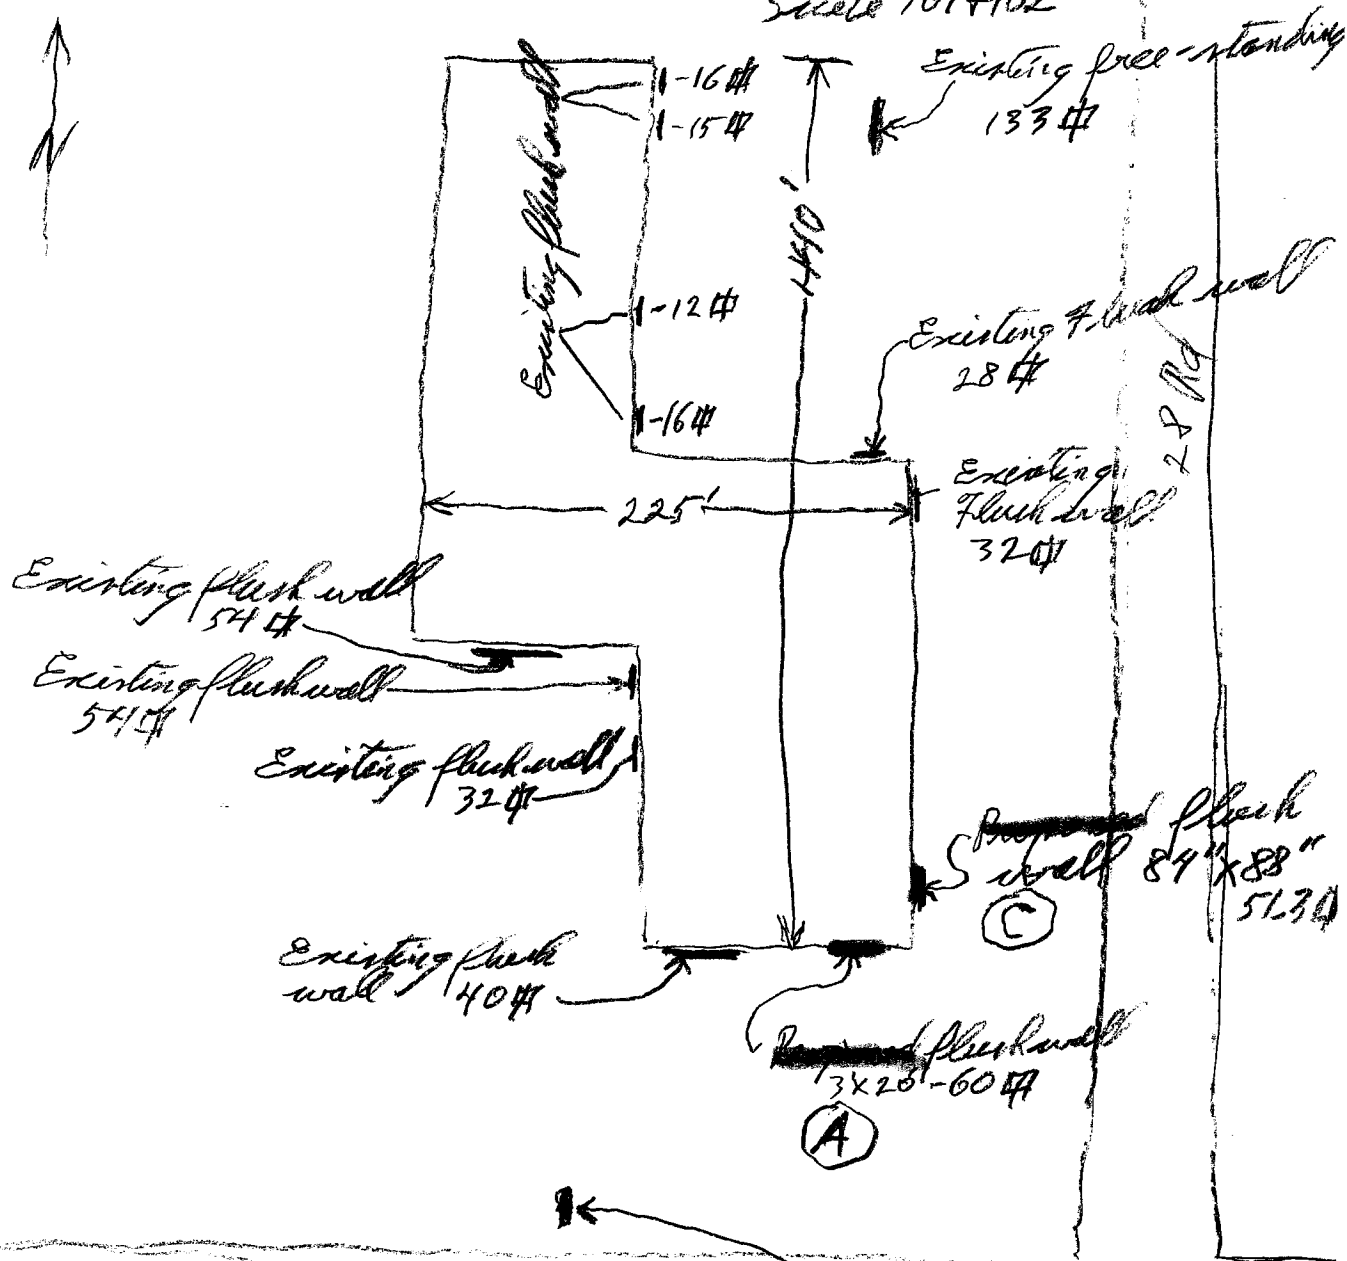 Suite 101 & 102
N
Existing free-standing
133 ⌗
-16 ⌗
-15 ⌗
Existing flush wall
440'
-12 ⌗
-16 ⌗
Existing Flush wall
28 ⌗
28 Rd
225'
Existing
Flush wall
32 ⌗
Existing flush wall
54 ⌗
Existing flush wall
54 ⌗
Existing flush wall
32 ⌗
flush
wall 84" x 88"
51.3 ⌗
C
Existing flush
wall 40 ⌗
flush wall
3 x 20' - 60 ⌗
A